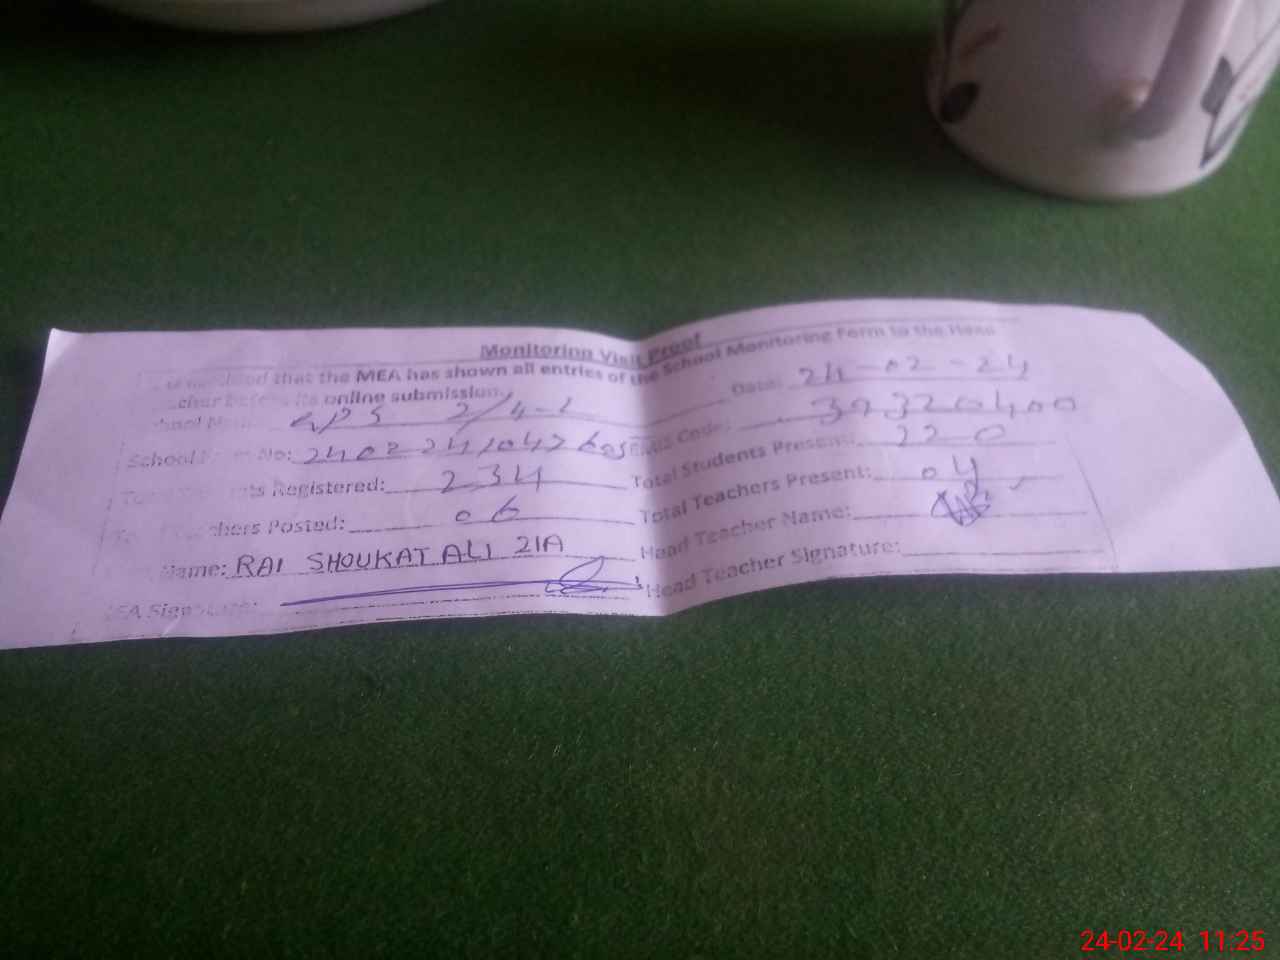 Monitoring Visit Proof
that the MEA has shown all entries of the School Monitoring Form to the Head
before its online submission.
Date: 24-02-24
GPS 2/4-L
Code: 39320400
School No:
Registered: 234
Total Students Present: 220
Posted: 06
Total Teachers Present: 04
Name: RAI SHOUKAT ALI 21A
Head Teacher Name:
MEA Signature:
Head Teacher Signature:
24-02-24 11:25